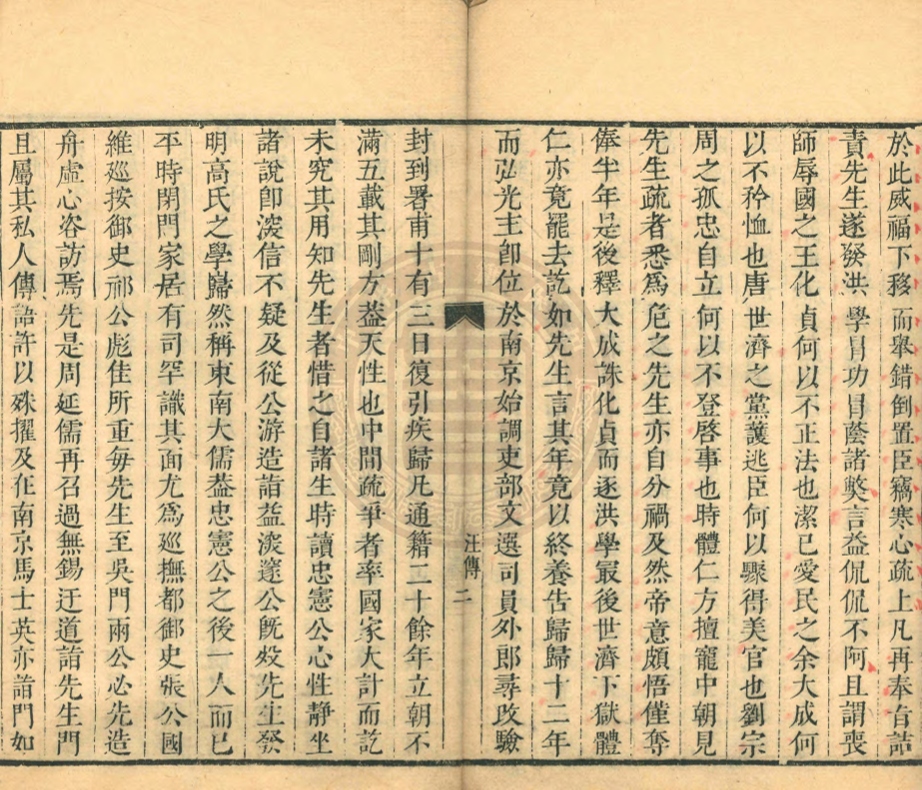 於此威福下移而舉錯倒置臣竊寒心疏上凡再奉旨詰
責先生遂發洪學冒功冒蔭諸獘言益侃侃不阿且謂喪
師辱國之王化貞何以不正法也潔已愛民之余大成何
以不矜恤也唐世濟之黨護逃臣何以驟得美官也劉宗
周之孤忠自立何以不登啓事也時體仁方擅寵中朝見
先生疏者悉爲危之先生亦自分禍及然帝意頗悟僅奪
俸半年是後釋大成誅化貞而逐洪學最後世濟下獄體
仁亦竟罷去訖如先生言其年竟以終養告歸歸十二年
而弘光主卽位於南京始調吏部文選司員外郎尋改驗
汪傳 二
封到署甫十有三日復引疾歸凡通籍二十餘年立朝不
滿五載其剛方葢天性也中間疏爭者率國家大計而訖
未究其用知先生者惜之自諸生時讀忠憲公心性靜坐
諸說卽深信不疑及從公游造詣益深邃公旣歿先生發
明高氏之學歸然稱東南大儒葢忠憲公之後一人而已
平時閉門家居有司罕識其面尤爲巡撫都御史張公國
維巡按御史祁公彪佳所重每先生至吳門兩公必先造
舟虛心咨訪焉先是周延儒再召過無錫迂道詣先生門
且屬其私人傳語許以殊擢及在南京馬士英亦詣門如